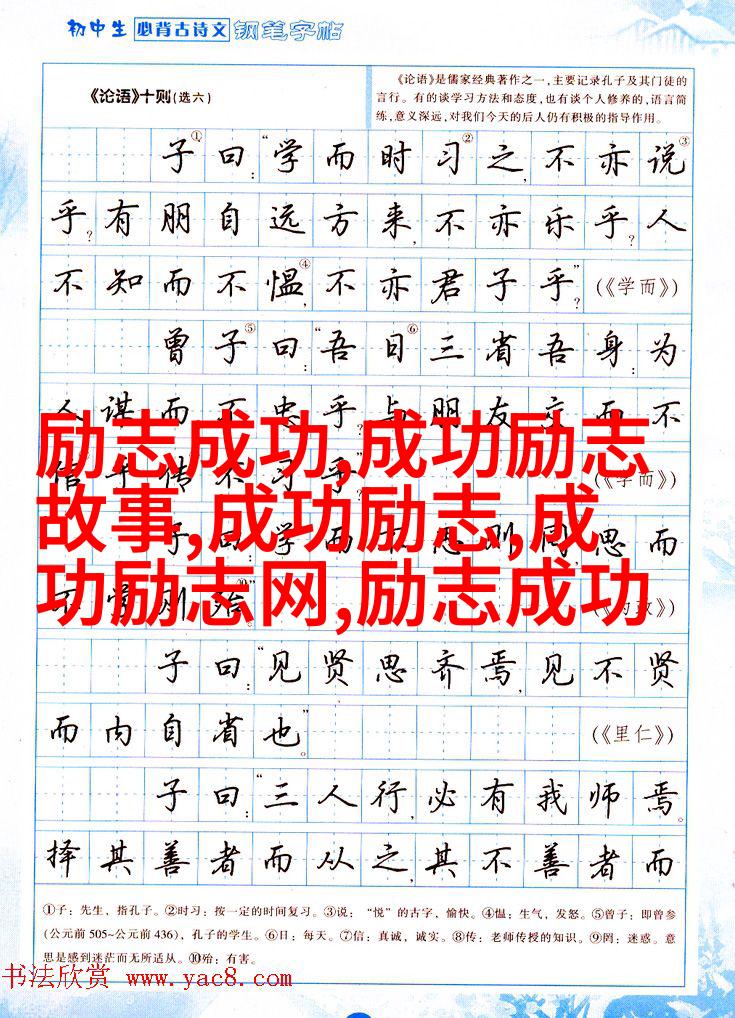 初中生 必背古诗文 钢笔字帖
《论语》十则(选六)
《论语》是儒家经典著作之一,主要记录孔子及其门徒的
言行。有的谈学习方法和态度,也有谈个人修养的,语言简
练,意义深远,对我们今天的后人仍有积极的指导作用。
子①曰:“学而时习②之,不亦说③
乎?有朋自远方来,不亦乐乎?人
不知而不愠④,不亦君子乎”?(《学而》)
曾子⑤曰:“吾日⑥三省吾身:为
人谋而不忠乎?与朋友交而不
信乎 传不习乎?”(《学而》)
子曰:学而不思则罔,思而
不学则殆⑩”(《为政》)
励志成功,成功励志
故事,成功励志,成
功励志网,励志成功
子曰:“见贤思齐焉,见不贤
而内自省也”。(《里仁》)
子曰:“三人行,必有我师焉。
择其善者而从之,其不善者而
①子:先生,指孔子。②时习:按一定的时间复习。③说:“悦”的古字,愉快。④愠:生气,发怒。⑤曾子:即曾参
(公元前505~公元前436),孔子的学生。⑥日:每天。⑦信:真诚,诚实。⑧传:老师传授的知识。⑨罔:迷惑。意
思是感到迷茫而无所适从。⑩殆:有害。
书法欣赏 www.yac8.com